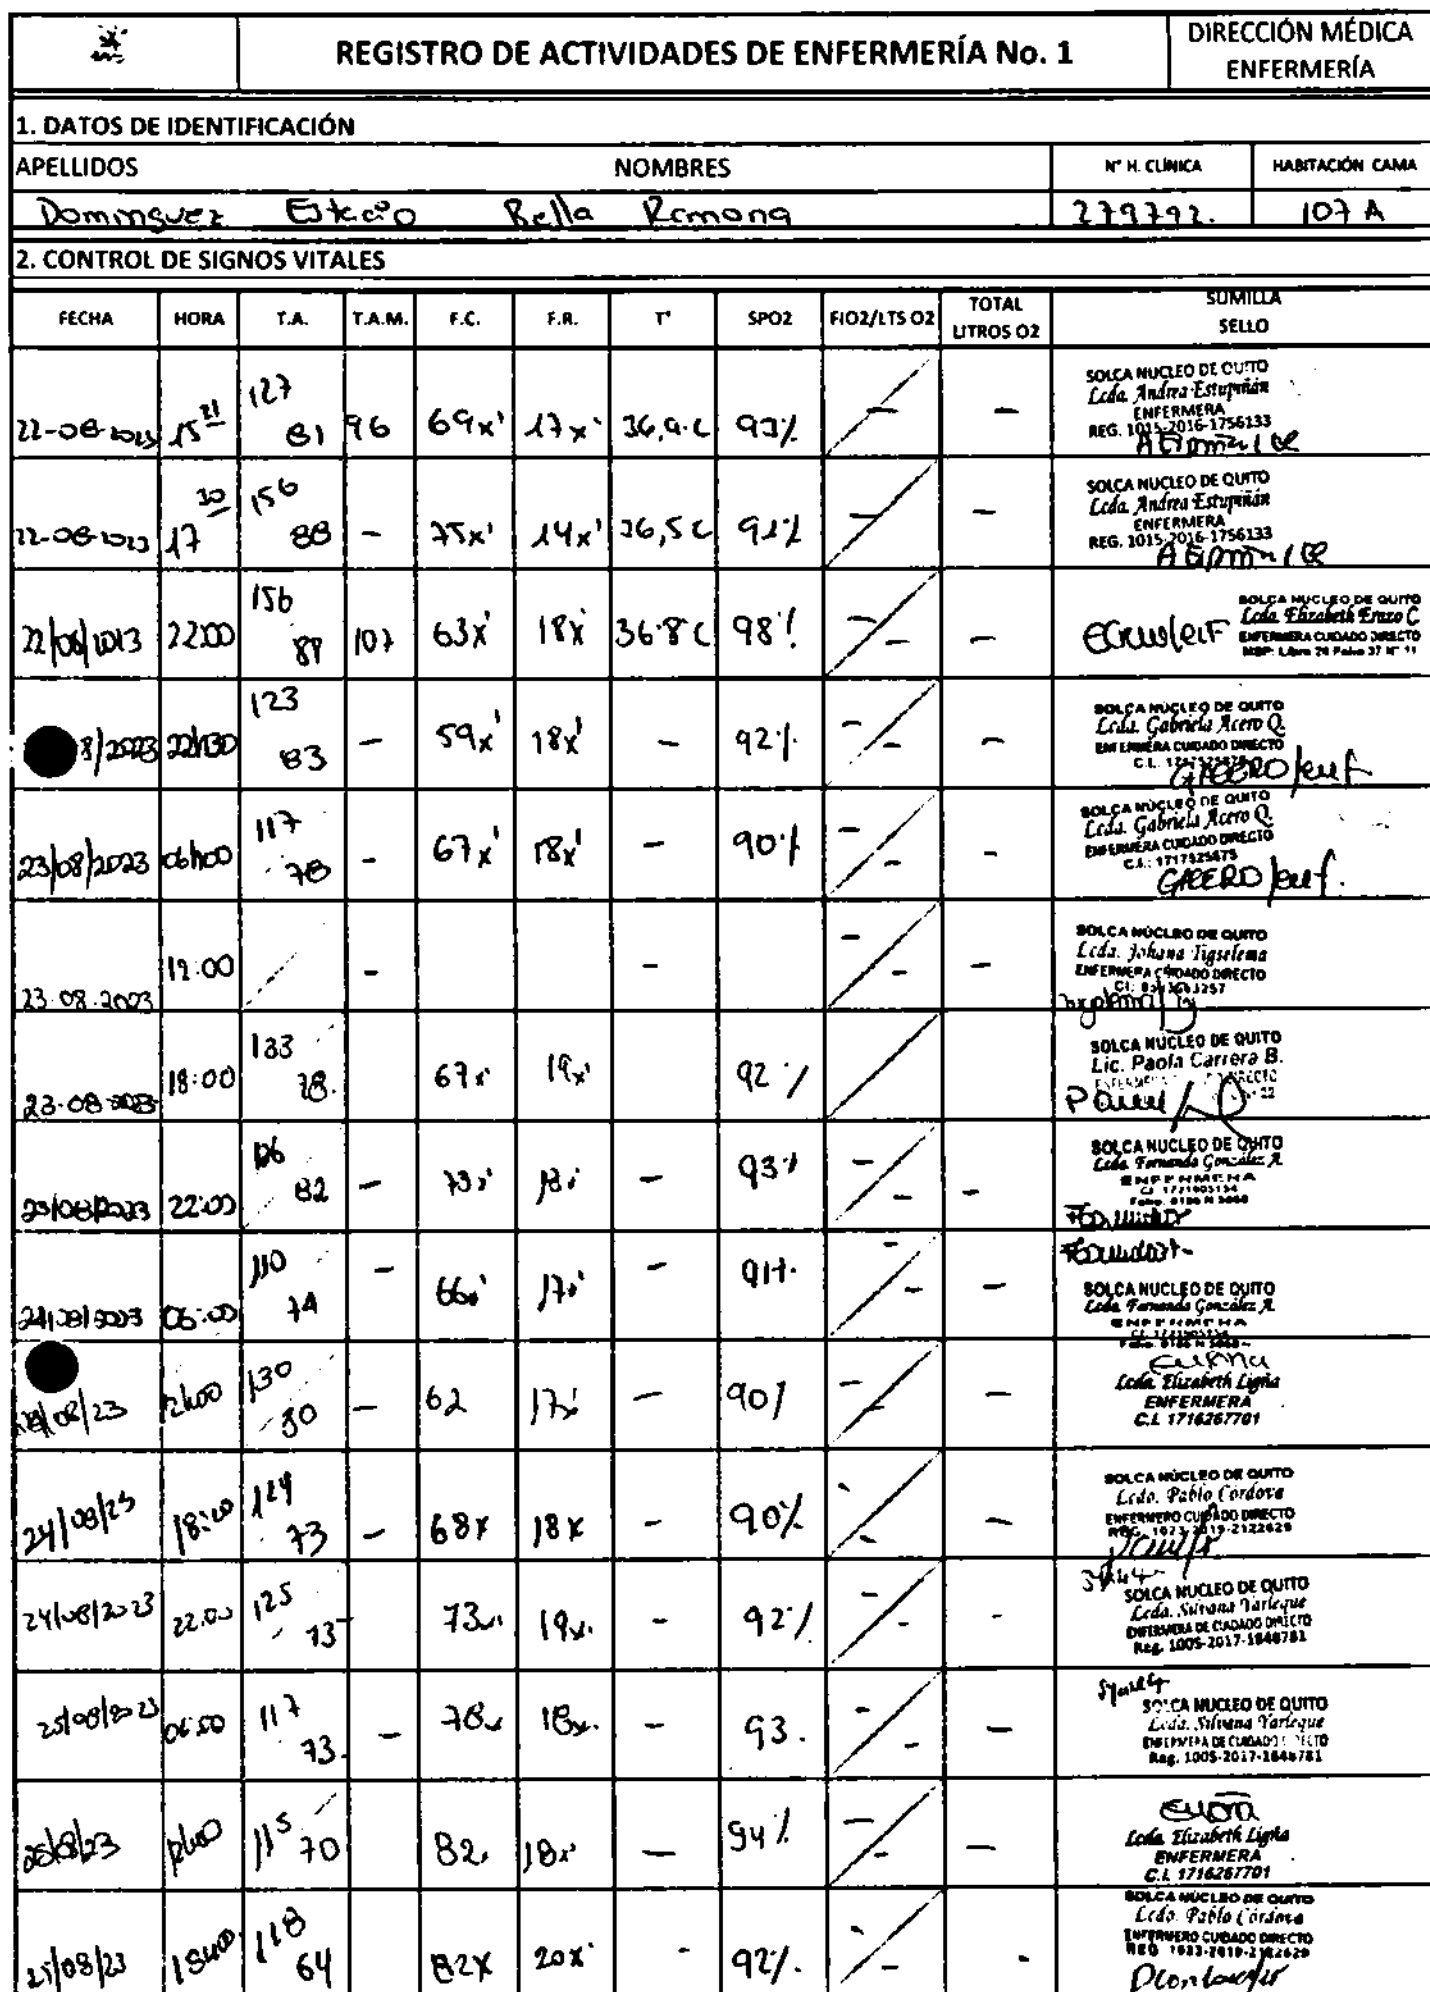 REGISTRO DE ACTIVIDADES DE ENFERMERÍA No. 1
DIRECCIÓN MÉDICA
ENFERMERÍA
1. DATOS DE IDENTIFICACIÓN
APELLIDOS NOMBRES N° H. CLÍNICA HABITACIÓN CAMA
Dominguez Bella Ramona 279792. 107 A
2. CONTROL DE SIGNOS VITALES
FECHA HORA T.A. T.A.M. F.C. F.R. T° SPO2 FIO2/LTS O2 TOTAL LITROS O2 SUMILLA SELLO
22-08-2023 15 21 127 81 96 69x' 17x' 36,9·C 93% - - -
SOLCA NUCLEO DE QUITO
Lcda. Andrea Estupiñán
ENFERMERA
REG. 1015-2016-1756133
22-08-2023 17 30 156 88 - 75x' 14x' 36,5 C 92% - - -
SOLCA NUCLEO DE QUITO
Lcda. Andrea Estupiñán
ENFERMERA
REG. 1015-2016-1756133
22/08/2023 22:00 156 88 107 63x' 18x' 36.8 C 98% - - -
SOLCA NUCLEO DE QUITO
Lcda. Elizabeth Erazo C
ENFERMERA CUIDADO DIRECTO
8/2023 22h30 123 83 - 59x' 18x' - 92% - - -
SOLCA NUCLEO DE QUITO
Lcda. Gabriela Acero Q.
ENFERMERA CUIDADO DIRECTO
GACERO/enf
23/08/2023 06h00 117 78 - 67x' 18x' - 90% - - -
SOLCA NUCLEO DE QUITO
Lcda. Gabriela Acero Q.
ENFERMERA CUIDADO DIRECTO
C.I.: 1717525675
GACERO/enf.
23.08.2023 12:00 - - - - -
SOLCA NÚCLEO DE QUITO
Lcda. Johana Tigselema
ENFERMERA CUIDADO DIRECTO
23-08-2023 18:00 133 78. 67x' 19x' 92%
SOLCA NUCLEO DE QUITO
Lic. Paola Carrera B.
23/08/2023 22:00 82 - 73x' 18x' - 93% - - -
SOLCA NUCLEO DE QUITO
Lcda. Fernanda González A.
ENFERMERA
24/08/2023 06:00 110 74 - 66x' 17x' - 91% - - -
SOLCA NUCLEO DE QUITO
Lcda. Fernanda González A.
ENFERMERA
24/08/23 12h00 130 80 - 62 17x' - 90% - - -
Lcda. Elizabeth Ligña
ENFERMERA
C.I. 1716267701
24/08/23 18:00 124 73 - 68x 18x - 90% - - -
SOLCA NÚCLEO DE QUITO
Lcdo. Pablo Córdova
ENFERMERO CUIDADO DIRECTO
REG. 1023-2019-2122629
24/08/2023 22:00 125 73 - 73x. 19x. - 92% - - -
SOLCA NUCLEO DE QUITO
Lcda. Silvana Yarleque
ENFERMERA DE CUIDADO DIRECTO
Reg. 1005-2017-1848781
25/08/2023 06:00 117 73. - 78x 18x. - 93. - - -
SOLCA NUCLEO DE QUITO
Lcda. Silvana Yarleque
ENFERMERA DE CUIDADO DIRECTO
Reg. 1005-2017-1848781
25/08/23 12h00 115 70 82. 18x' - 94% - - -
Lcda. Elizabeth Ligña
ENFERMERA
C.I. 1716267701
25/08/23 18h00 118 64 82x 20x' - 92%. - - -
SOLCA NÚCLEO DE QUITO
Lcdo. Pablo Córdova
ENFERMERO CUIDADO DIRECTO
REG. 1023-2019-2122629